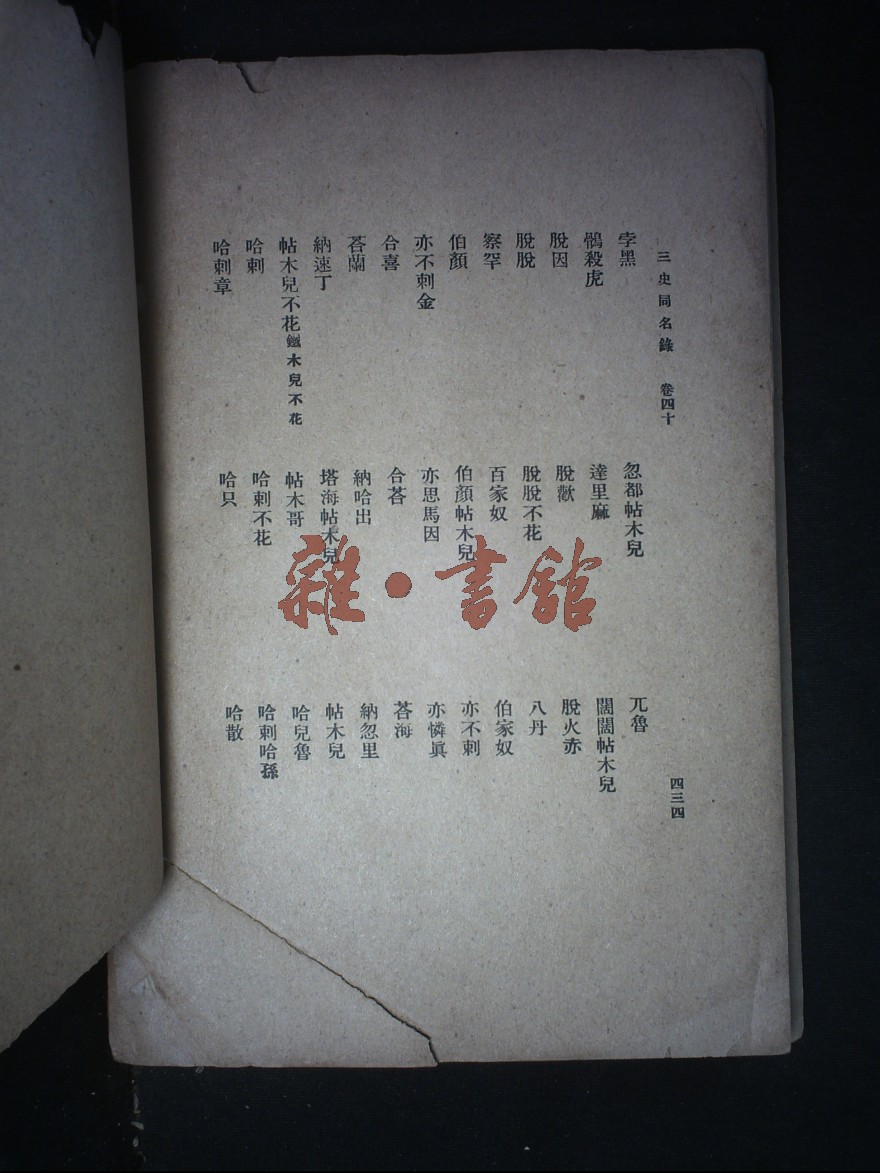 三史同名錄 卷四十 四三四
孛黑 忽都帖木兒 兀魯
鶻殺虎 達里麻 闊闊帖木兒
脫因 脫歡 脫火赤
脫脫 脫脫不花 八丹
察罕 百家奴 伯家奴
伯顏 伯顏帖木兒 亦不剌
亦不剌金 亦思馬因 亦憐眞
合喜 合荅 荅海
荅蘭 納哈出 納忽里
納速丁 塔海帖木兒 帖木兒
帖木兒不花鐵木兒不花 帖木哥 哈兒魯
哈剌 哈剌不花 哈剌哈孫
哈剌章 哈只 哈散
雜·書館